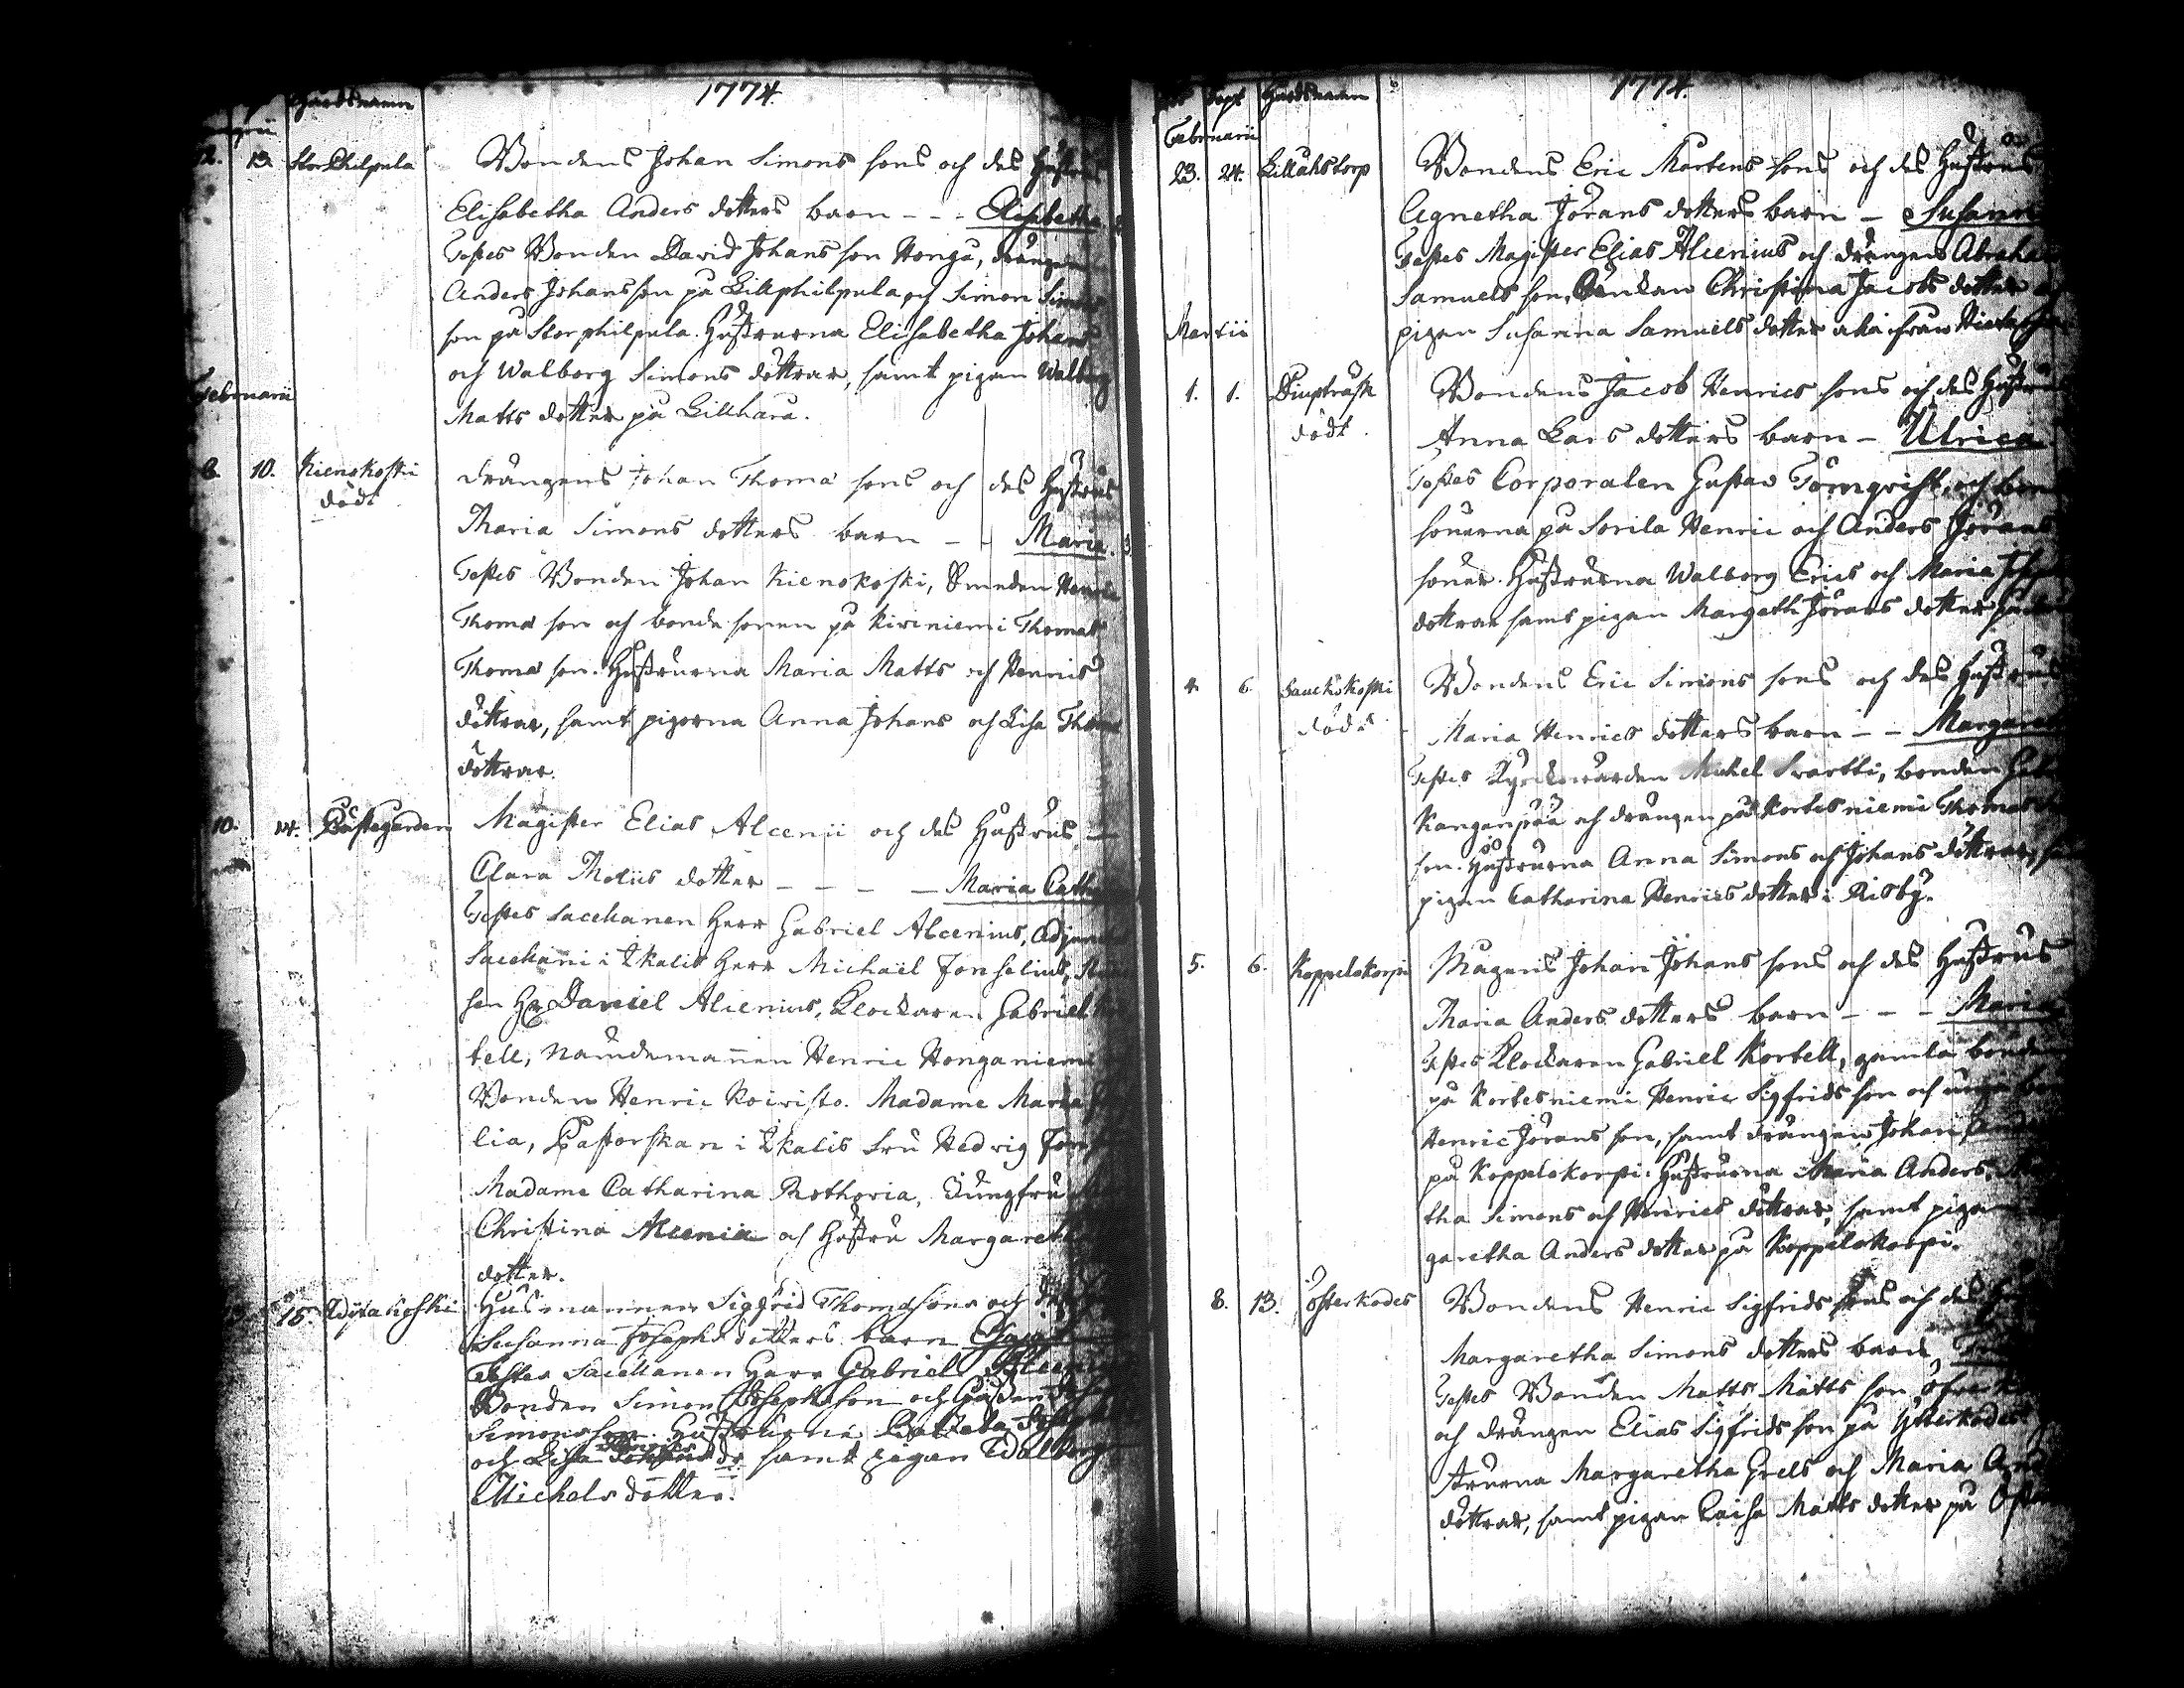 Gårdsnamn
1774.
13. StorPhilpula Bondens Johan Simons sons och des Hustrus
Elisabetha Anders dotters barn - - - Elisabetha
Testes Bonden David Johans son Honga, drängen
Anders Johansson på Lillphilpula och Simon Simons
son på Storphilpula. Hustrurna Elisabetha Johans
och Walborg Simons döttrar, samt pigan Walborg
Februarii
Matts dotter på Lillhara.
8. 10. Kienokoski drängens Johan Thomæ sons och des Hustrus
dödt
Maria Simons dotters barn - - Maria.
Testes Bonden Johan Kienokoski, Smeden Henric
Thomæ son och bonde sonen på Kiviniemi Thomas
Thomæ son. Hustrurna Maria Matts och Hennis
döttrar, samt pigorna Anna Johans och Lisa Thomæ
döttrar.
10. 14. Prästegården Magister Elias Alcenii och des Hustrus
Clara dotter - - - - Maria Cath
Testes Sacellanen Herr Gabriel Alcenius, Adjunct
Sacellani i Ikalis Herr Michaël Fonselius,
sen Hr Daniel Alcenius, Klockaren Gabriel
tell, Nämdemannen Henric Honganiemi
Bonden Henric Koivisto. Madame Maria
lia, Pastorskan i Ikalis Fru Hedvig Fon
Madame Catharina Rothovia, Jungfru
Christina Alcenia och Hustru Margaretha
dotter.
15. Husmannen Sigfrid Thomasons och
Susanna Josephs dotters barn
Testes Sacellanen Herr Gabriel Alceni
Bonden Simon Josephsson och
Simonsson. Hustrurna
och Lisa samt pigan Walborg
Michels dotter.
Dopt Gårdsnamn
1774.
Februarii
23. 24. Lillåhstorp Bondens Eric Mårtens sons och des Hustrus
Agnetha Jörans dotters barn - Susann
Testes Magister Elias Alcenius och drängen Abraha
Samuels son, Christina Jacobs dotter
Martii
pigan Susanna Samuels dotter
1. 1. Diupträsk Bondens Jacob Henrics sons och des Hustru
dödt.
Anna Lars dotters barn - Ulrica
Testes Corporalen Gustav Törnqvist, och bon
sönerna på Sorila Henric och Anders Jörans
söner. Hustrurna Walborg Erics och Maria Joh
döttrar samt pigan Margeth Jörans dotter
4. 6. Sauckokoski Bondens Eric Simons sons och des Hustrus
dödt
Maria Henrics dotters barn - - Margaret
Testes Kyrckiovärden Michel Svartti, bonden
Kanganpää och drängen på Kortesniemi Thomas
son. Hustrurna Anna Simons och Johans döttrar,
pigan Catharina Henrics dotter i Risby.
5. 6. Koppelokorpi Magens Johan Johans sons och des Hustrus
Maria Anders dotters barn - - - Maria
Testes Klockaren Gabriel Kortell, gamla bonden
på Kortesniemi Henric Sigfrids son och unga
Henric Jörans son, samt drängen Johan
på Koppelokorpi. Hustrurna Maria Anders,
tha Simons och Henrics döttrar, samt pigan
garetha Anders dotter på Koppelokorpi.
8. 13. Österkodes Bondens Henric Sigfrids sons och des
Margaretha Simons dotters barn,
Testes Bonden Matts Matts son
och drängen Elias Sigfrids son på Ytterkodes
strurna Margaretha Grels och Maria
döttrar, samt pigan Caisa Matts dotter på